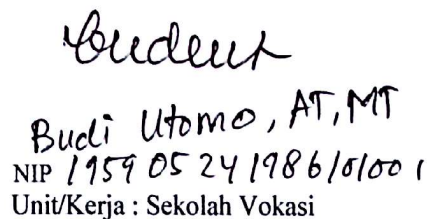 Budi Utomo, AT, MT
NIP 195905241986101001
Unit/Kerja : Sekolah Vokasi